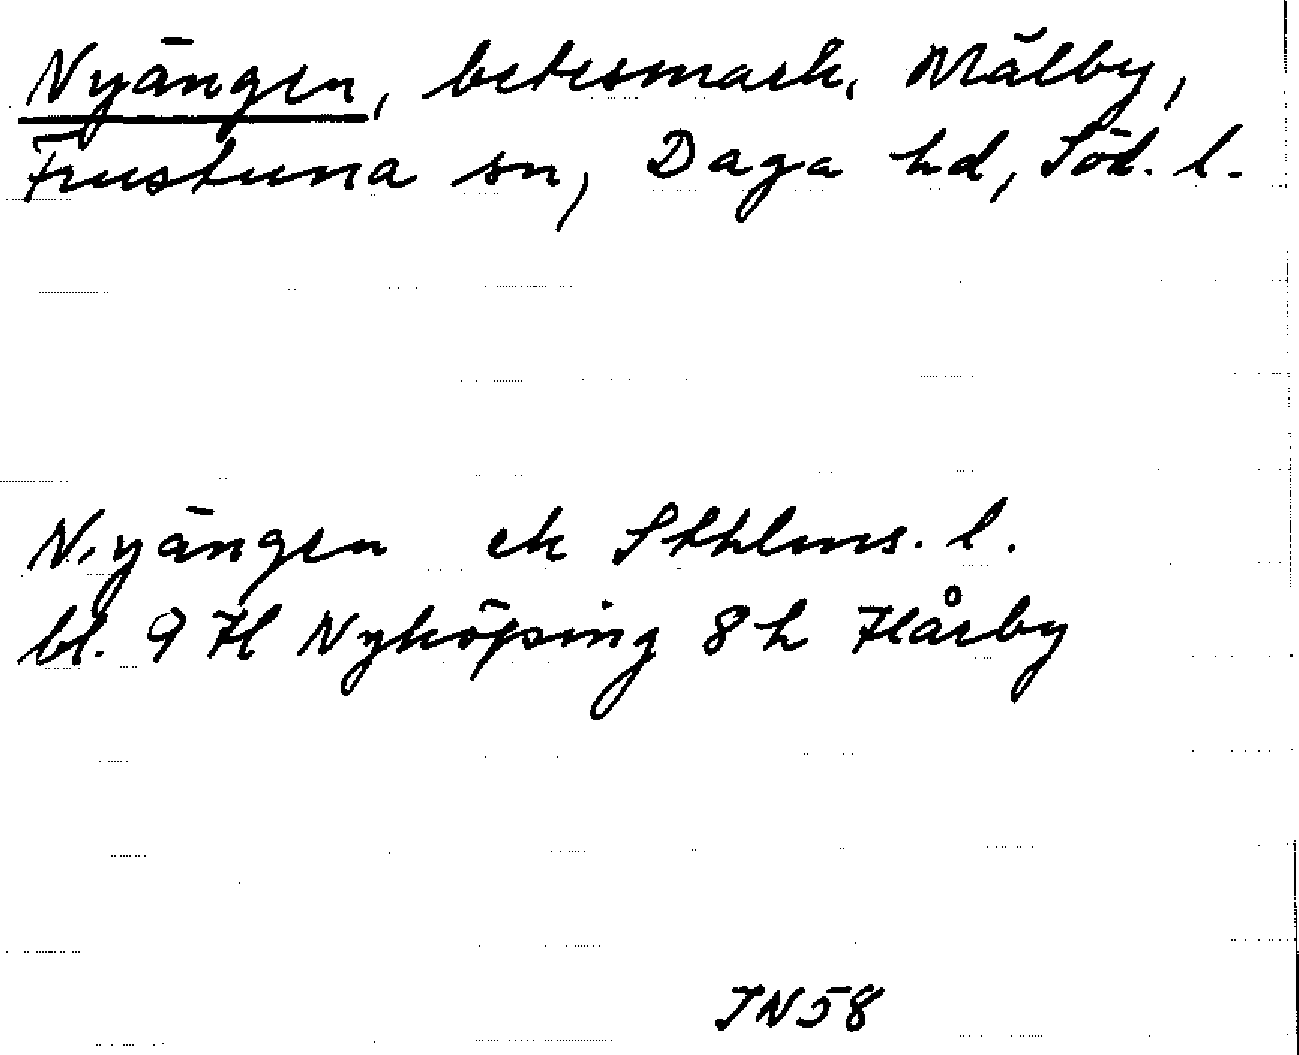 Nyängen, betesmark, Målby,
Frustuna sn, Daga hd, Söd. l.
Nyängen ek Sthlms. l.
bl. 9 H Nyköping 8 h Hårby
JN58